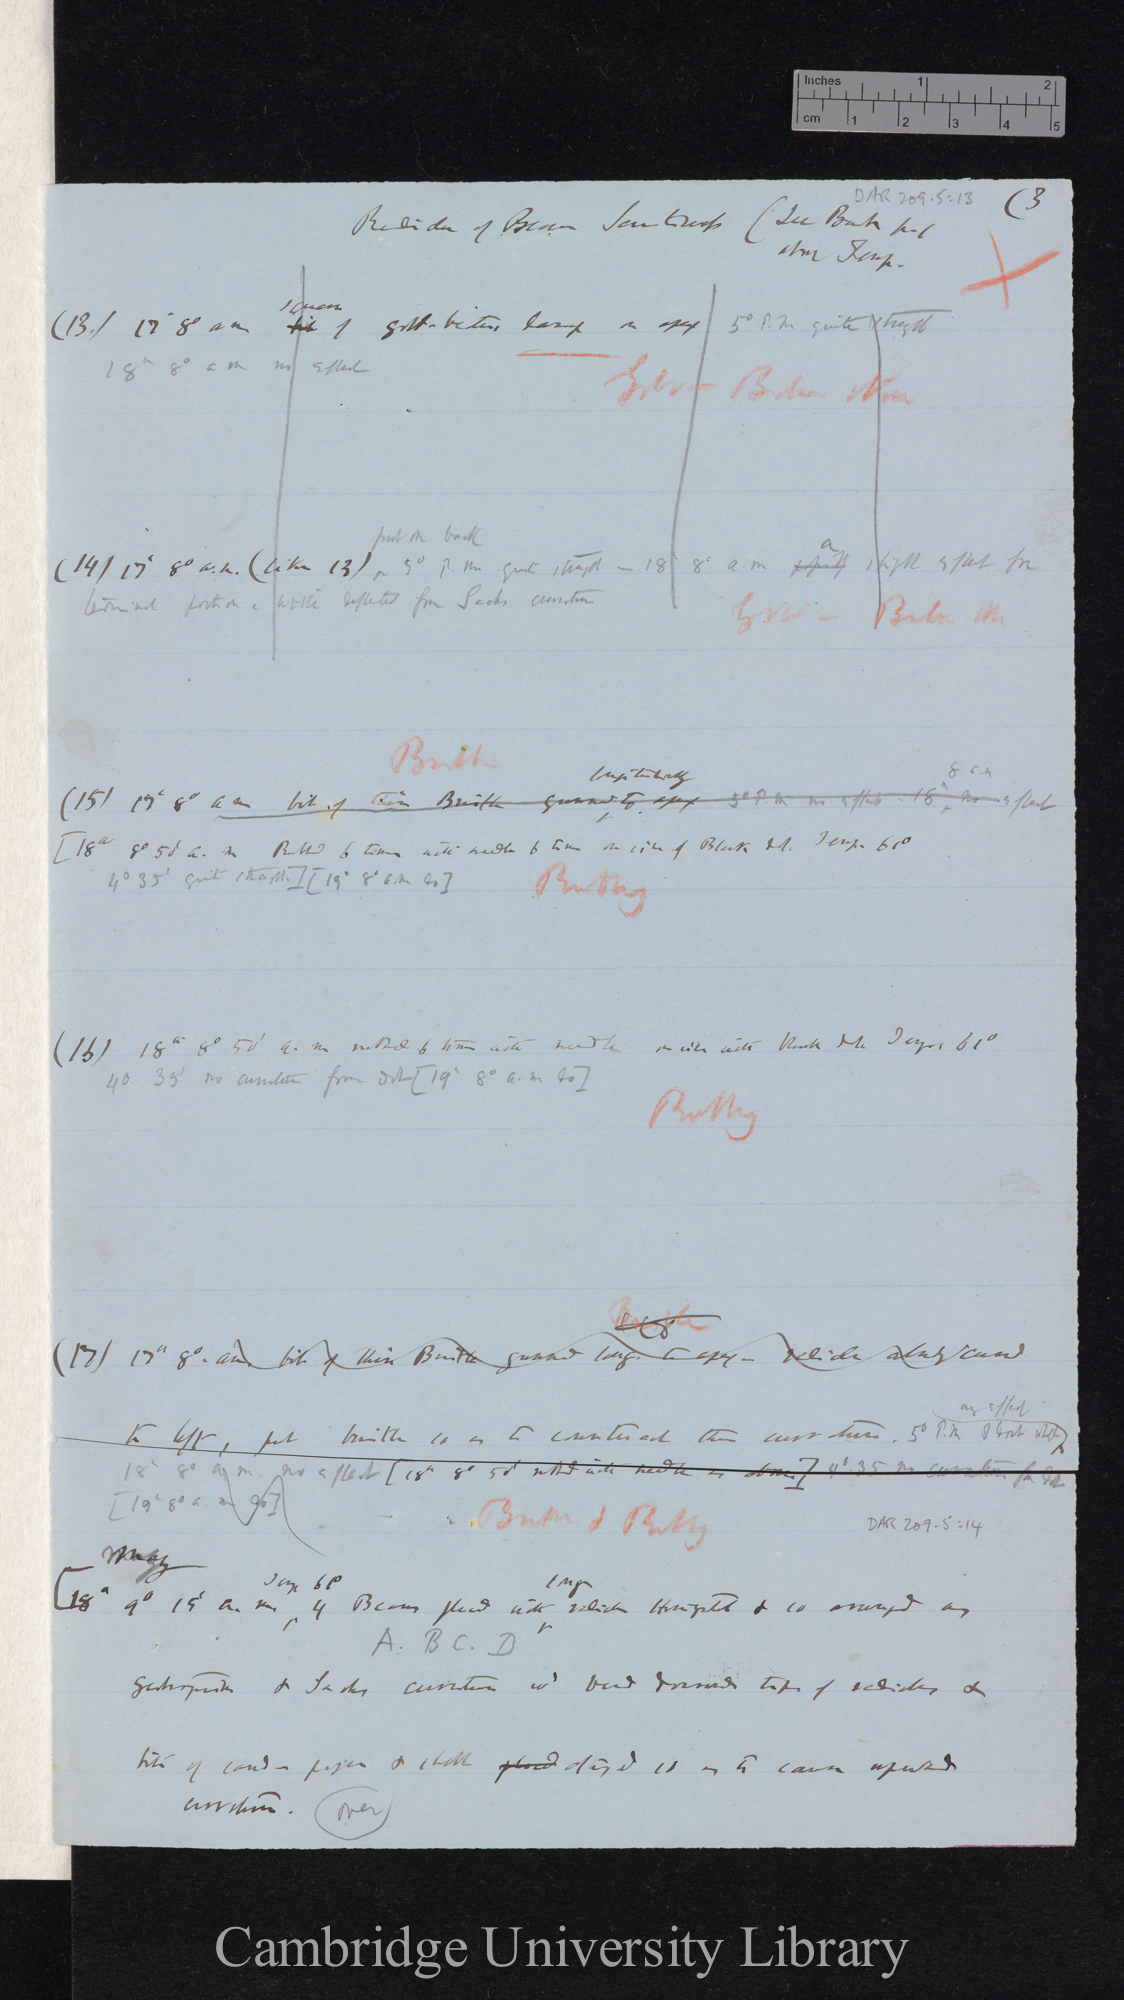 Inches 1 2
cm 1 2 3 4 5
DAR 209.5:13 (3
Radicles of Beans Sensitiveness (See Book p. 1
about Temp.
square
(13.) 17th 8° a m bit of gold-beaters on apex 5° P.M quite straight
18th 8° a m no effect
Gold— Beaters skin
put on back
(14) 17th 8° a.m. (like 13) ^ 5° P.M quite straight — 18th 8° a.m a slight effect for
terminal portion a little deflected from Sachs curvature
Gold— Beaters skin
Bristle
longitudinally 8 a.m
(15) 17th 8° a m bit of thin Bristle gummed to apex 5° P.M no effect. 18th ^ no effect
[18th 8° 50' a. m Rubbed 6 times with needle 6 times on side of Black dot. Temp. 61°
4° 35' quite straight] [19th 8° a.m do]
Rubbing
(16) 18th 8° 50' a. m rubbed 6 times with needle on side with black dot Temp. 61°
4° 35' no curvature from Dot [19th 8° a. m do]
Rubbing
Bristle
(17) 17th 8° a m bit of thin Bristle gummed long. to apex — radicle already curved
to left, put bristle so as to counteract this curvature. 5° P.M
any effect
18th 8° a. m. no effect [18th 8° 50' rubbed with needle as above] 4° 35 no curvature from dot
[19th 8° a. m do]
Bristle & Rubbing
DAR 209.5:14
Temp 61° long
[18th 9° 15' a. m ^ 4 Beans placed with ^ radicles straight & so arranged as
A. B C. D
Geotropism & Sachs curvature wd bend downwards tips of radicles &
bits of card paper & placed so as to cause upward
curvature. (over)
Cambridge University Library